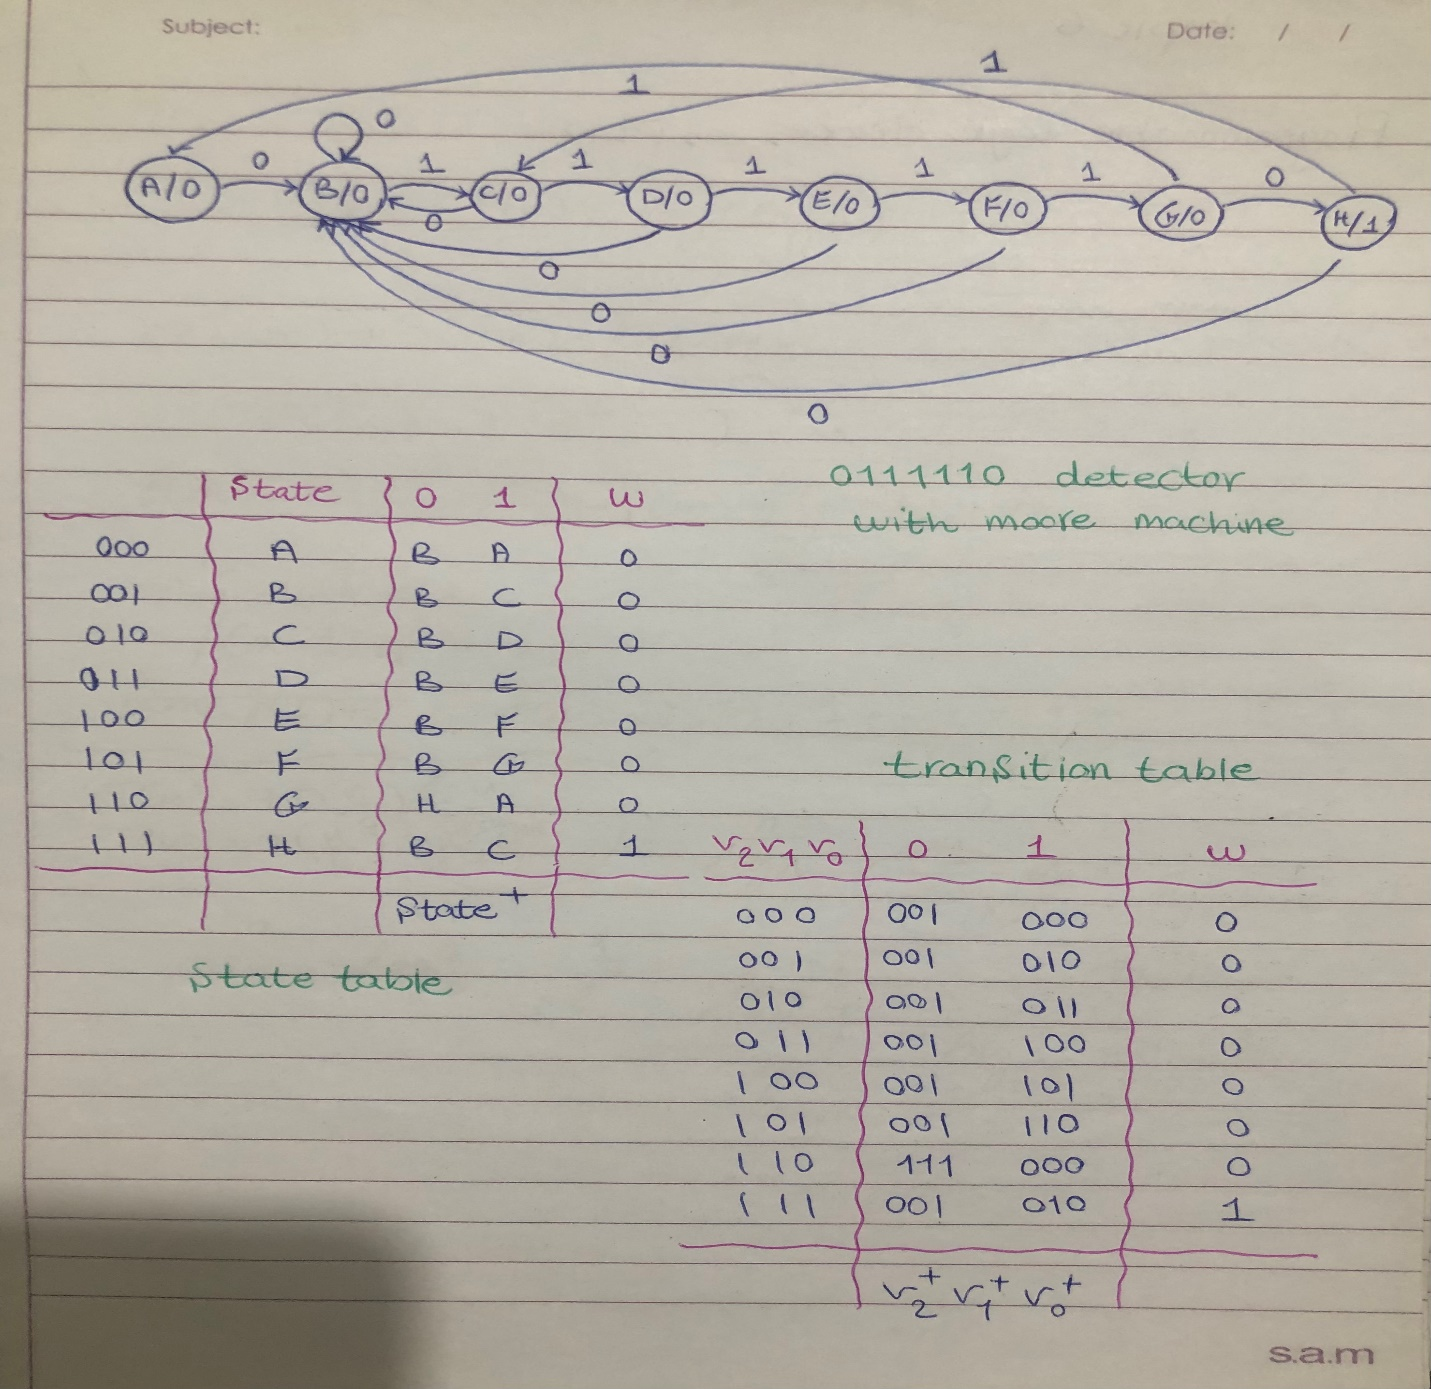 Subject: Date: / /
1 1
0
0 1 1 1 1 1 0
A/0 B/0 C/0 D/0 E/0 F/0 G/0 H/1
0
0
0
0
0
0111110 detector
with moore machine
State 0 1 w
000 A B A 0
001 B B C 0
010 C B D 0
011 D B E 0
100 E B F 0
101 F B G 0
110 G H A 0
111 H B C 1
State⁺
State table
transition table
V₂V₁V₀ 0 1 w
000 001 000 0
001 001 010 0
010 001 011 0
011 001 100 0
100 001 101 0
101 001 110 0
110 111 000 0
111 001 010 1
V₂⁺ V₁⁺ V₀⁺
s.a.m